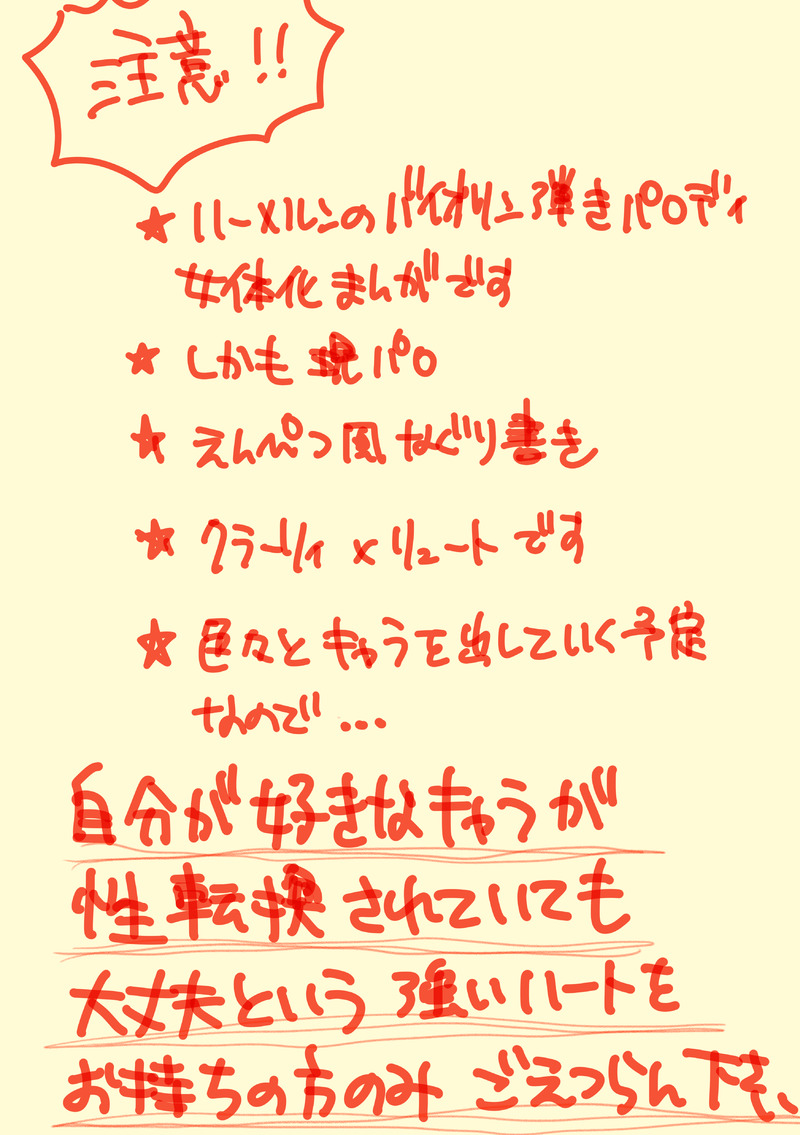 注意!!
★ハーメルンのバイオリン弾きパロディ
女体化まんがです
★しかも現パロ
★えんぴつ風なぐり書き
★クラーリィ×リュートです
★色々とキャラを出していく予定
なので…
自分が好きなキャラが
性転換されていても
大丈夫という強いハートを
お持ちの方のみ ごえつらん下さい